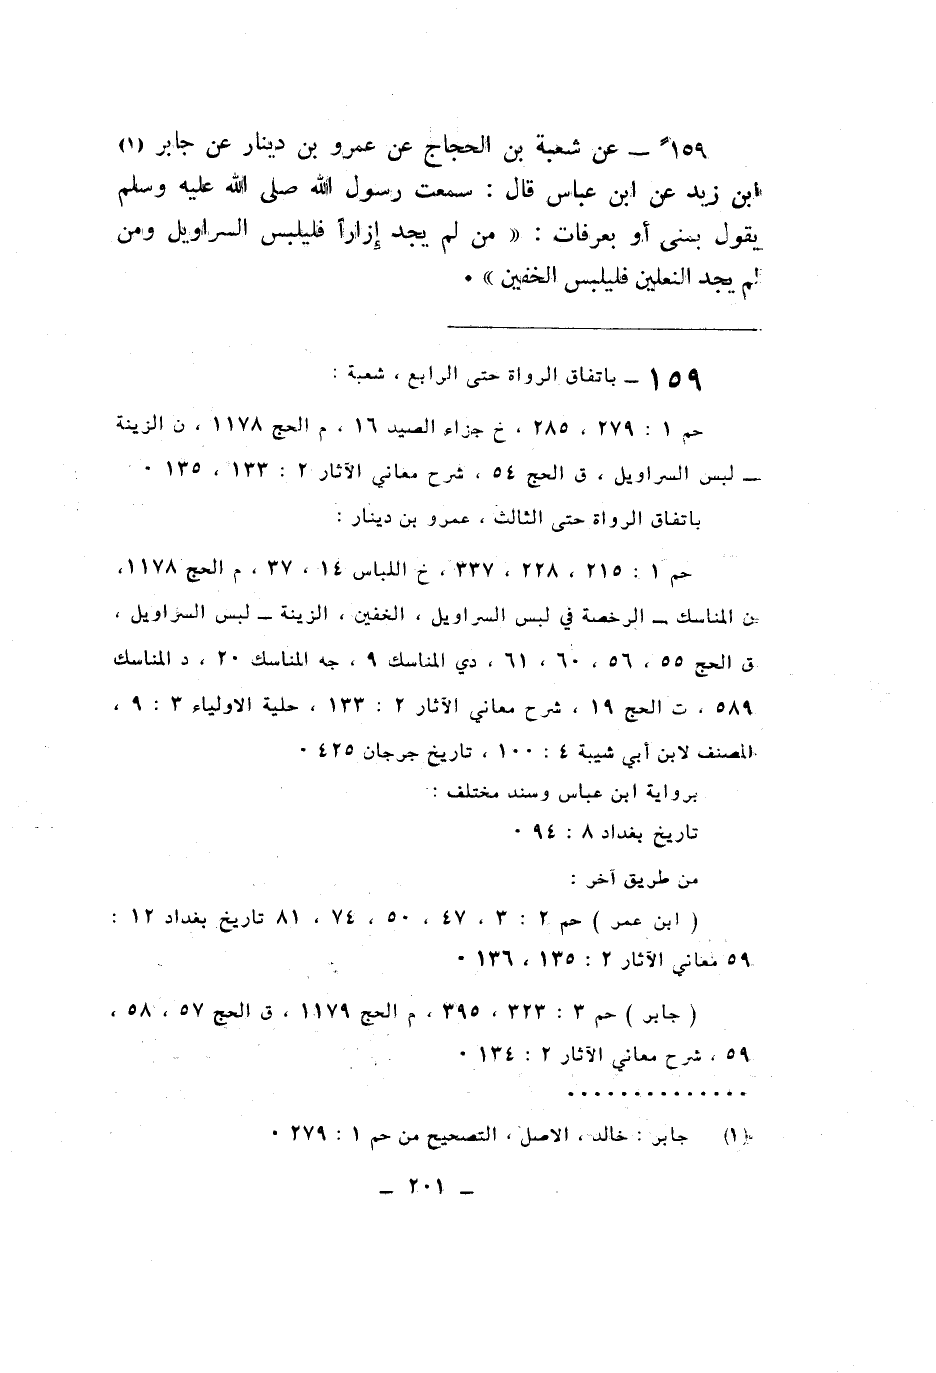 ١٥٩ً ـ عن شعبة بن الحجاج عن عمرو بن دينار عن جابر (١)
ابن زيد عن ابن عباس قال : سمعت رسول الله صلى الله عليه وسلم
يقول بمنى أو بعرفات : « من لم يجد إزاراً فليلبس السراويل ومن
لم يجد النعلين فليلبس الخفين » ٠
١٥٩ ـ باتفاق الرواة حتى الرابع ، شعبة :
حم ١ : ٢٧٩ ، ٢٨٥ ، خ جزاء الصيد ١٦ ، م الحج ١١٧٨ ، ن الزينة
ـ لبس السراويل ، ق الحج ٥٤ ، شرح معاني الآثار ٢ : ١٣٣ ، ١٣٥ ٠
باتفاق الرواة حتى الثالث ، عمرو بن دينار :
حم ١ : ٢١٥ ، ٢٢٨ ، ٣٣٧ ، خ اللباس ١٤ ، ٣٧ ، م الحج ١١٧٨،
ن المناسك ـ الرخصة في لبس السراويل ، الخفين ، الزينة ـ لبس السراويل ،
ق الحج ٥٥ ، ٥٦ ، ٦٠ ، ٦١ ، دي المناسك ٩ ، جه المناسك ٢٠ ، د المناسك
٥٨٩ ، ت الحج ١٩ ، شرح معاني الآثار ٢ : ١٣٣ ، حلية الاولياء ٣ : ٩ ،
المصنف لابن أبي شيبة ٤ : ١٠٠ ، تاريخ جرجان ٤٢٥ ٠
برواية ابن عباس وسند مختلف :
تاريخ بغداد ٨ : ٩٤ ٠
من طريق آخر :
( ابن عمر ) حم ٢ : ٣ ، ٤٧ ، ٥٠ ، ٧٤ ، ٨١ تاريخ بغداد ١٢ :
٥٩ معاني الآثار ٢ : ١٣٥ ، ١٣٦ ٠
( جابر ) حم ٣ : ٣٢٣ ، ٣٩٥ ، م الحج ١١٧٩ ، ق الحج ٥٧ ، ٥٨ ،
٥٩ ، شرح معاني الآثار ٢ : ١٣٤ ٠
٠٠٠٠٠٠٠٠٠٠٠٠٠٠
(١) جابر : خالد ، الاصل ، التصحيح من حم ١ : ٢٧٩ ٠
ـ ٢٠١ ـ